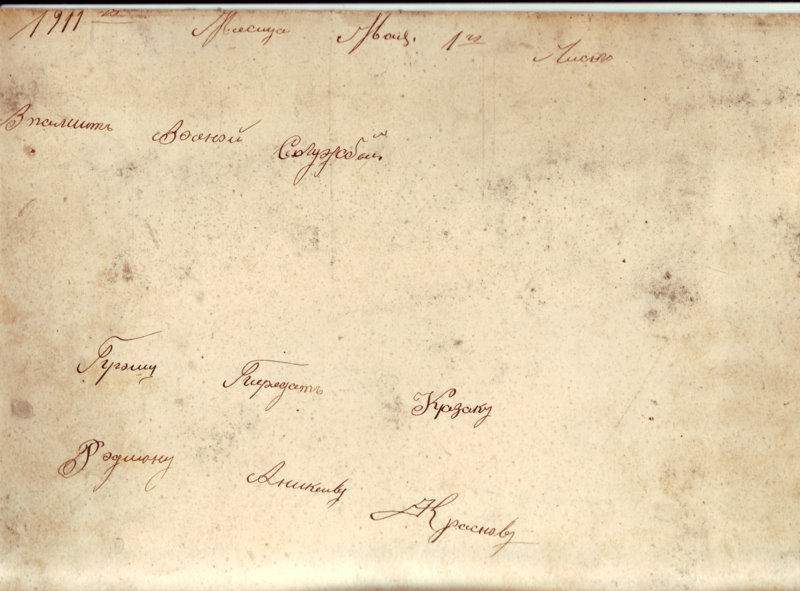 1911 го Месяца Мая. 1го Число
В памить Вэоной Службы
Прошу Передать Казаку
Родиону Аникеиву Краснову